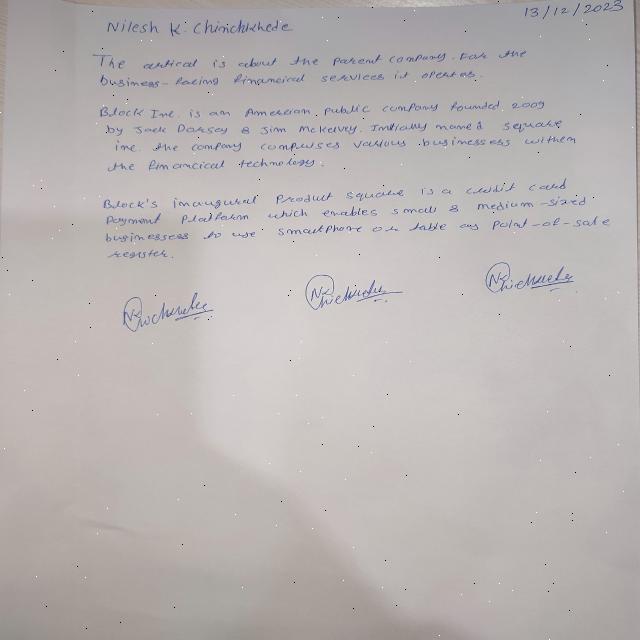 13/12/2023
Nilesh K. Chinchkhede
The artical is about the parent company. For the
business-facing financeial services it opertes.
Block Inc. is an Ameracian public company founded 2009
by Jack Darsay & Jim Mckelvey. Initially named square
inc. the company compuses various businessess withen
the financical technology.
Block's inaugural Product square is a credit card
Payment Platform which enables small & medium-sized
businessess to use smartphone or table as point-of-sale
register.